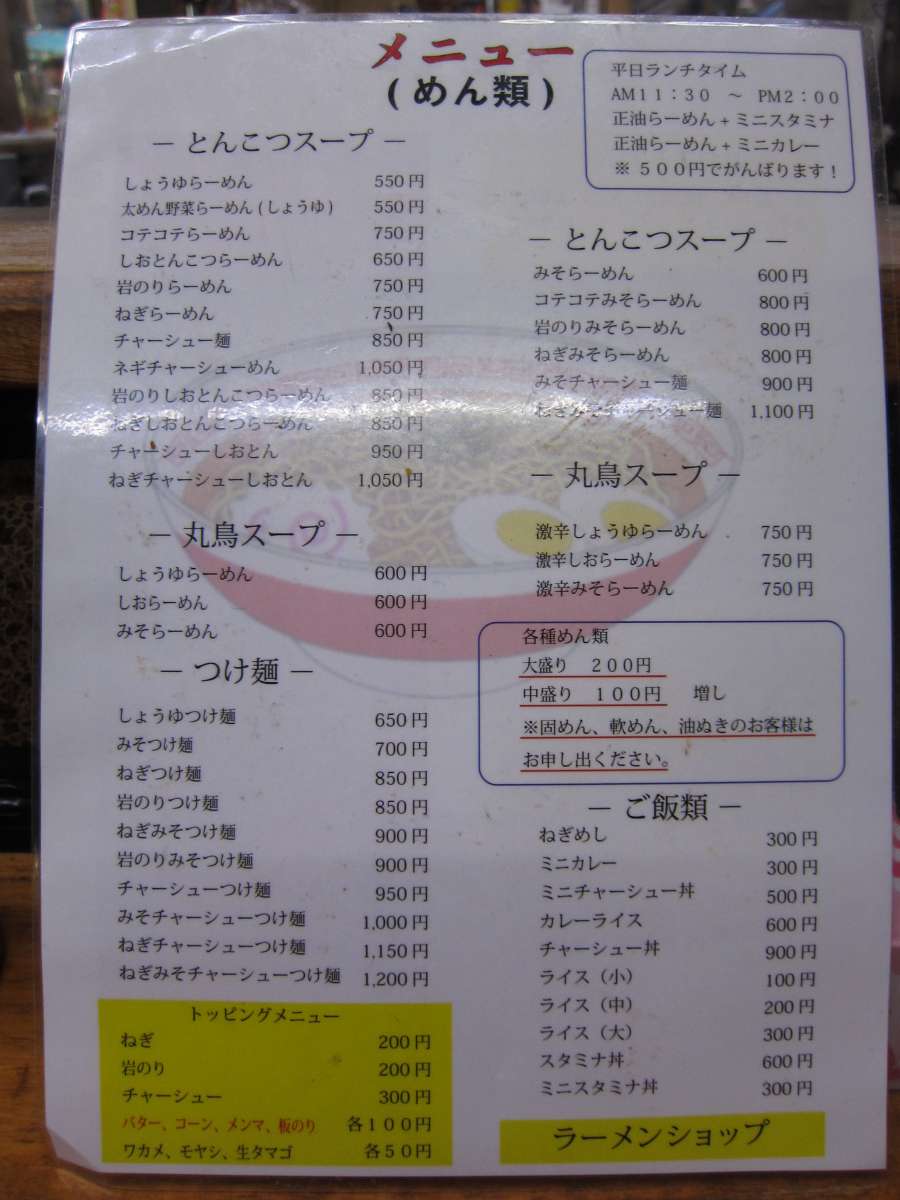 メニュー
(めん類)
平日ランチタイム
AM11：30　～　PM2：00
正油らーめん+ミニスタミナ
正油らーめん+ミニカレー
※ 500円でがんばります！
－とんこつスープ－
しょうゆらーめん 550円
太めん野菜らーめん(しょうゆ) 550円
コテコテらーめん 750円
しおとんこつらーめん 650円
岩のりらーめん 750円
ねぎらーめん 750円
チャーシュー麺 850円
ネギチャーシューめん 1,050円
岩のりしおとんこつらーめん 850円
ねぎしおとんこつらーめん 850円
チャーシューしおとん 950円
ねぎチャーシューしおとん 1,050円
－丸鳥スープ－
しょうゆらーめん 600円
しおらーめん 600円
みそらーめん 600円
－つけ麺－
しょうゆつけ麺 650円
みそつけ麺 700円
ねぎつけ麺 850円
岩のりつけ麺 850円
ねぎみそつけ麺 900円
岩のりみそつけ麺 900円
チャーシューつけ麺 950円
みそチャーシューつけ麺 1,000円
ねぎチャーシューつけ麺 1,150円
ねぎみそチャーシューつけ麺 1,200円
トッピングメニュー
ねぎ 200円
岩のり 200円
チャーシュー 300円
バター、コーン、メンマ、板のり 各100円
ワカメ、モヤシ、生タマゴ 各50円
－とんこつスープ－
みそらーめん 600円
コテコテみそらーめん 800円
岩のりみそらーめん 800円
ねぎみそらーめん 800円
みそチャーシュー麺 900円
ねぎみそチャーシュー麺 1,100円
－丸鳥スープ－
激辛しょうゆらーめん 750円
激辛しおらーめん 750円
激辛みそらーめん 750円
各種めん類
大盛り　200円
中盛り　100円　増し
※固めん、軟めん、油ぬきのお客様は
お申し出ください。
－ご飯類－
ねぎめし 300円
ミニカレー 300円
ミニチャーシュー丼 500円
カレーライス 600円
チャーシュー丼 900円
ライス（小） 100円
ライス（中） 200円
ライス（大） 300円
スタミナ丼 600円
ミニスタミナ丼 300円
ラーメンショップ